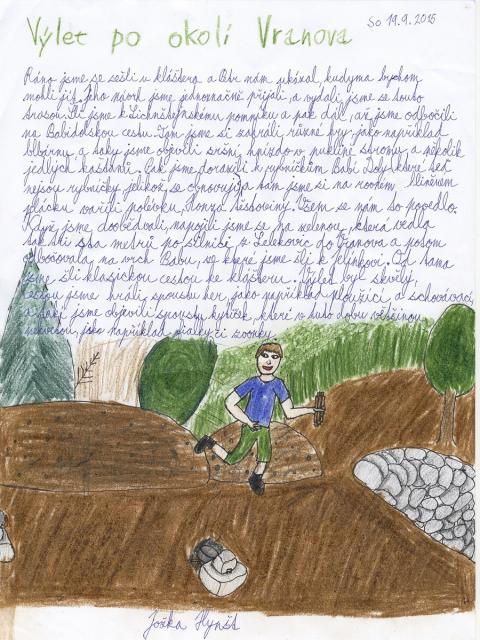 Výlet po okolí Vranova
So 19.9.2015
Ráno jsme se sešli u kláštera a Petr nám ukázal, kudyma bychom
mohli jít. Jeho návrh jsme jednoznačně přijali, a vydali jsme se touto
trasou. Šli jsme k Lichnštejnskému pomníku a pak dál, až jsme odbočili
na Babidolskou cestu. Tam jsme si zahráli různé hry, jako například
blbárnu, a taky jsme objevili sršní hnízdo v puklině stromu, a několik
jedlých kaštanů. Pak jsme dorazili k rybníčkům Babí Doly, které teď
nejsou rybníčky jelikož se obnovují a tam jsme si na rovném hliněném
plácku vařili polévku, Honza těstoviny. Všem se nám to povedlo.
Když jsme doobědvali, napojili jsme se na zelenou, která vedla
tak sto metrů po silnici z Lelekovic do Vranova a potom
odbočovala na vrch Babu, ze které jsme šli k Hlinkovi. Od tama
jsme šli klasickou cestou ke klášteru. Výlet byl skvělý,
cestou jsme hráli spoustu her jako například plouzící, a schovávací,
a také jsme objevili spoustu kytiček, které v tuto dobu většinou
nekvetou, jako například fialky či zvonky.
Jožka Hynšt